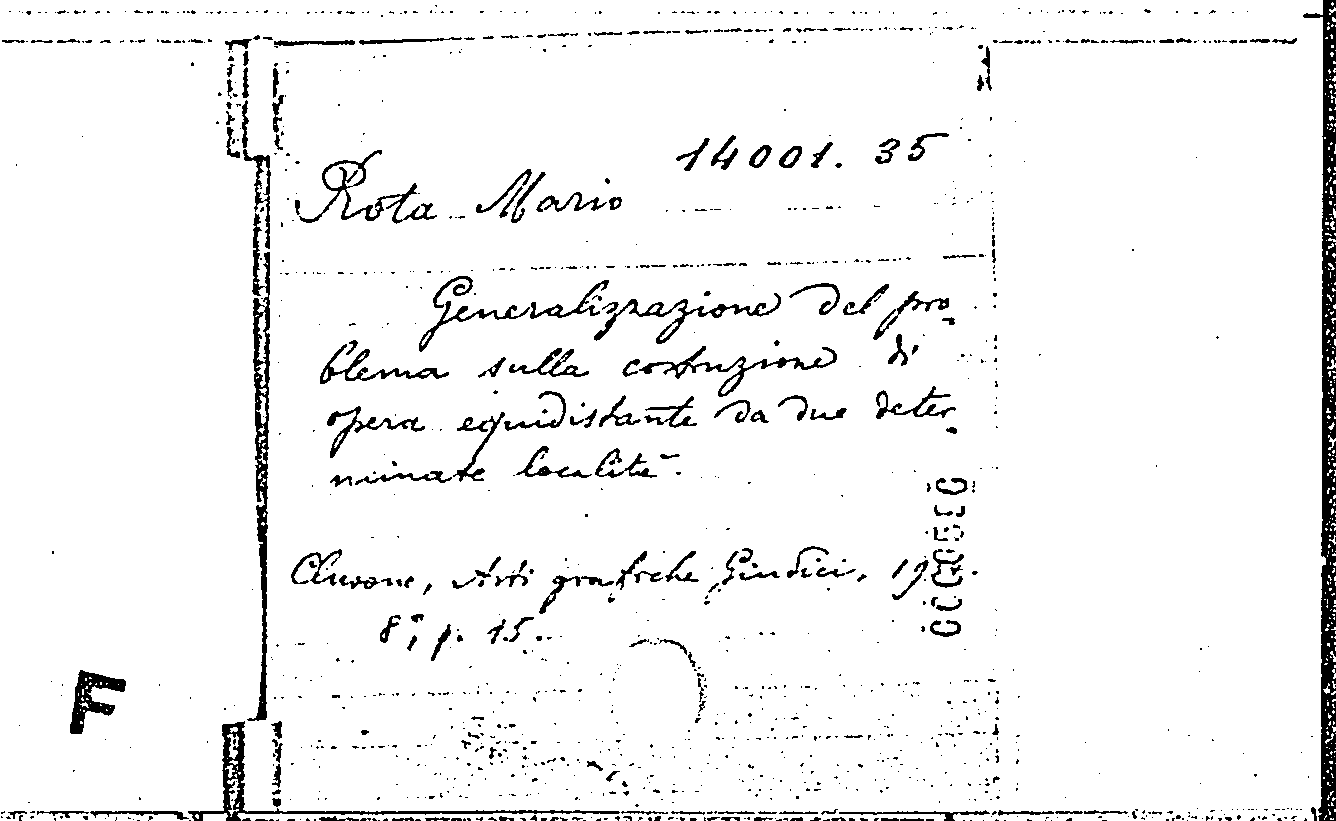 14001. 35
Rota Mario
Generalizzazione del pro-
blema sulla costruzione di
opera equidistante da due deter-
minate località.
Clusone, Arti grafiche Giudici,
8°, p. 15.
F